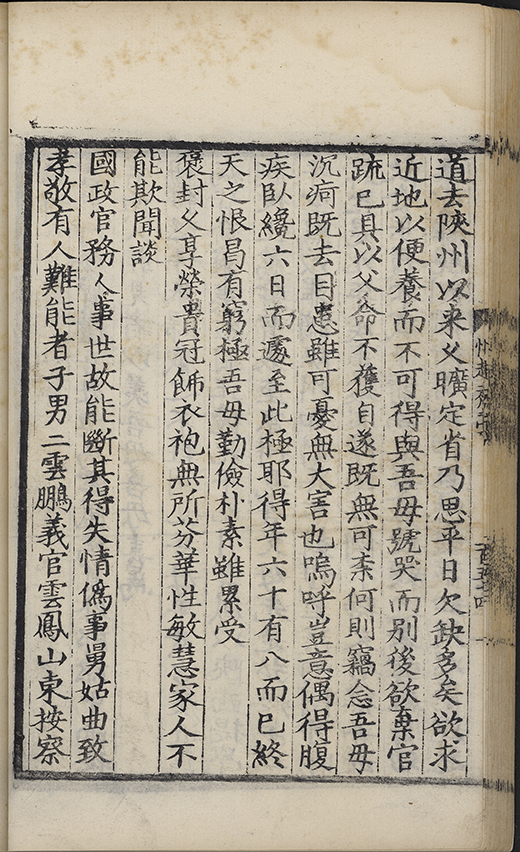 道去陝州以来久曠定省乃思平日欠缺多矣欲求
近地以便養而不可得與吾母號哭而別後欲棄官
疏已具以父命不獲自遂既無可柰何則竊念吾母
沉疴既去目患雖可憂無大害也嗚呼豈意偶得腹
疾臥纔六日而遽至此極耶得年六十有八而已終
天之恨曷有窮極吾母勤儉朴素雖累受
褒封父享榮貴冠飾衣袍無所芬華性敏慧家人不
能欺聞談
國政官務人事世故能斷其得失情僞事舅姑曲致
孝敬有人難能者子男二雲鵬義官雲鳳山東按察